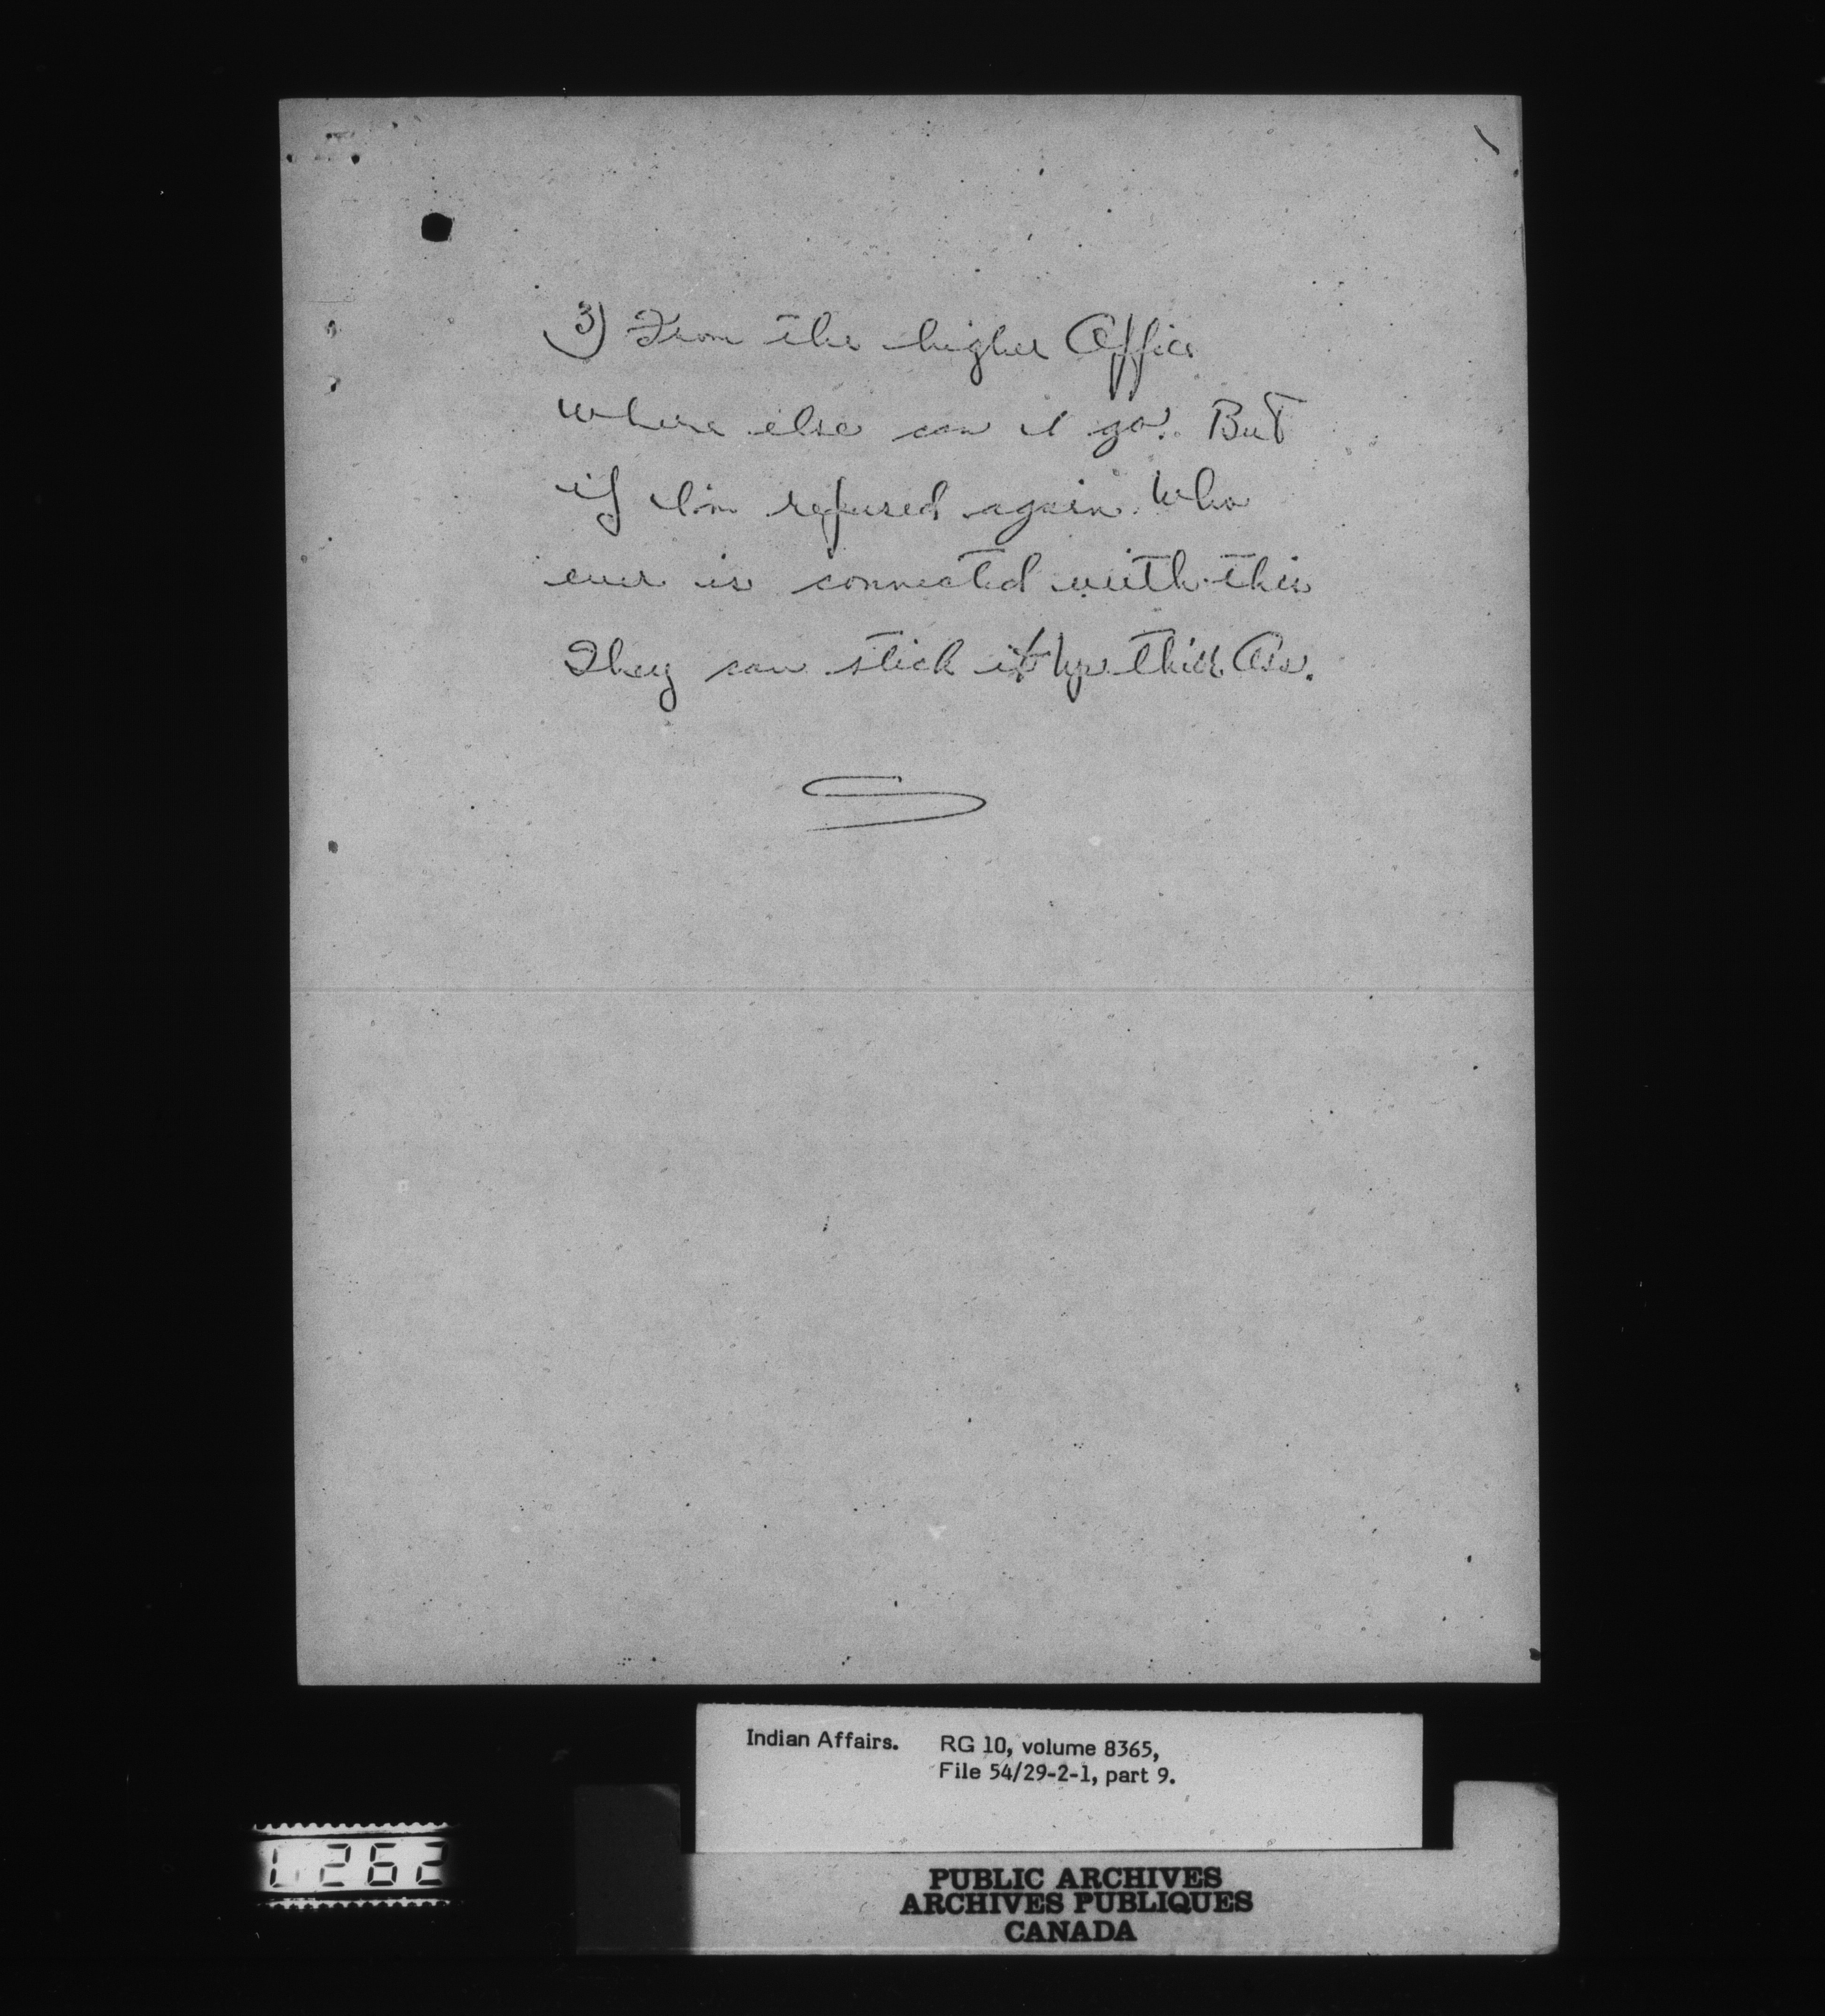 3) From the higher Office
where else can it go. But
if I'm refused again. Who
ever is connected with this
They can stick it up their Ass.
Indian Affairs. RG 10, volume 8365,
File 54/29-2-1, part 9.
PUBLIC ARCHIVES
ARCHIVES PUBLIQUES
CANADA